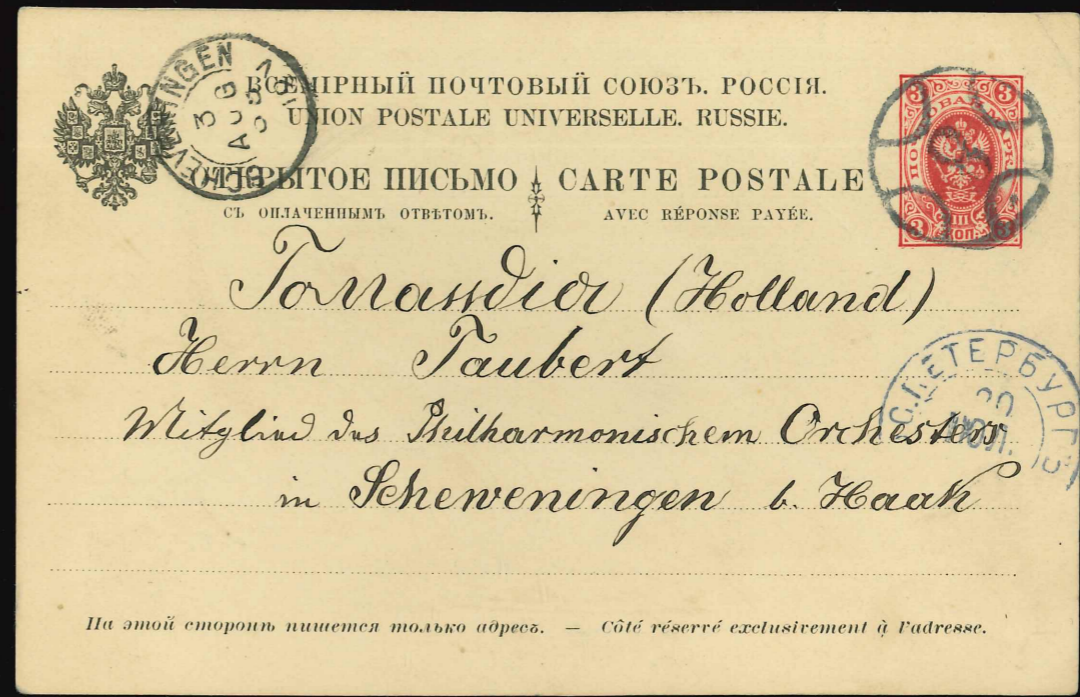 ВСЕМІРНЫЙ ПОЧТОВЫЙ СОЮЗЪ. РОССІЯ.
UNION POSTALE UNIVERSELLE. RUSSIE.
ОТКРЫТОЕ ПИСЬМО CARTE POSTALE
СЪ ОПЛАЧЕННЫМЪ ОТВѢТОМЪ. AVEC RÉPONSE PAYÉE.
3 3
ПОЧТОВАЯ МАРКА
3 КОП. 3
3 AUG
Голландія (Holland)
Herrn Taubert
С.ПЕТЕРБУРГЪ
20
ІЮЛ.
Mitglied des Philharmonischem Orchesters
in Scheweningen b. Haak
На этой сторонѣ пишется только адресъ. — Côté réservé exclusivement à l'adresse.